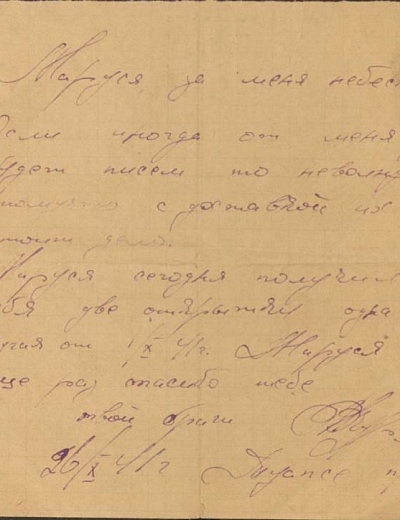 Маруся, за меня небес
если иногда от меня
будет писем то неволну
с доставкой их
дело.
Маруся сегодня получил
бя две открытки одна
угая от 1/X 41г. Маруся
ще раз спасибо тебе
твой
26/X 41г Туапсе п